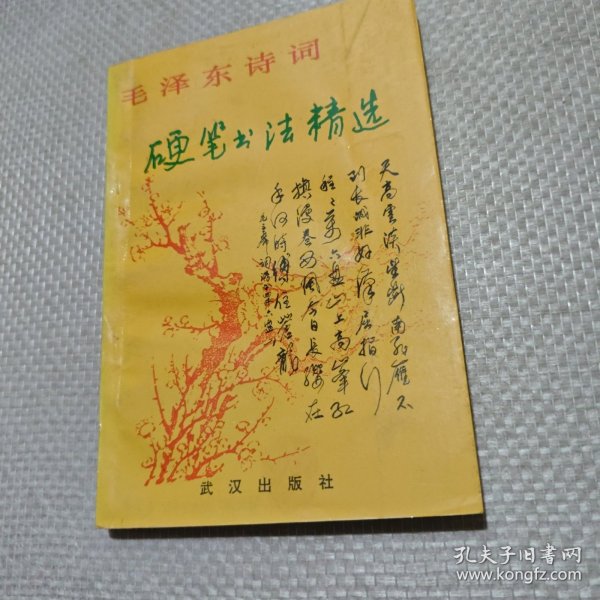 毛泽东诗词
硬笔书法精选
天高雲淡望断南飛雁不
到长城非好漢屈指行
程二萬六盘山上高峯红
旗漫卷西風今日長缨在
手何时缚住蒼龍
武汉出版社
孔夫子旧书网
www.kongfz.com